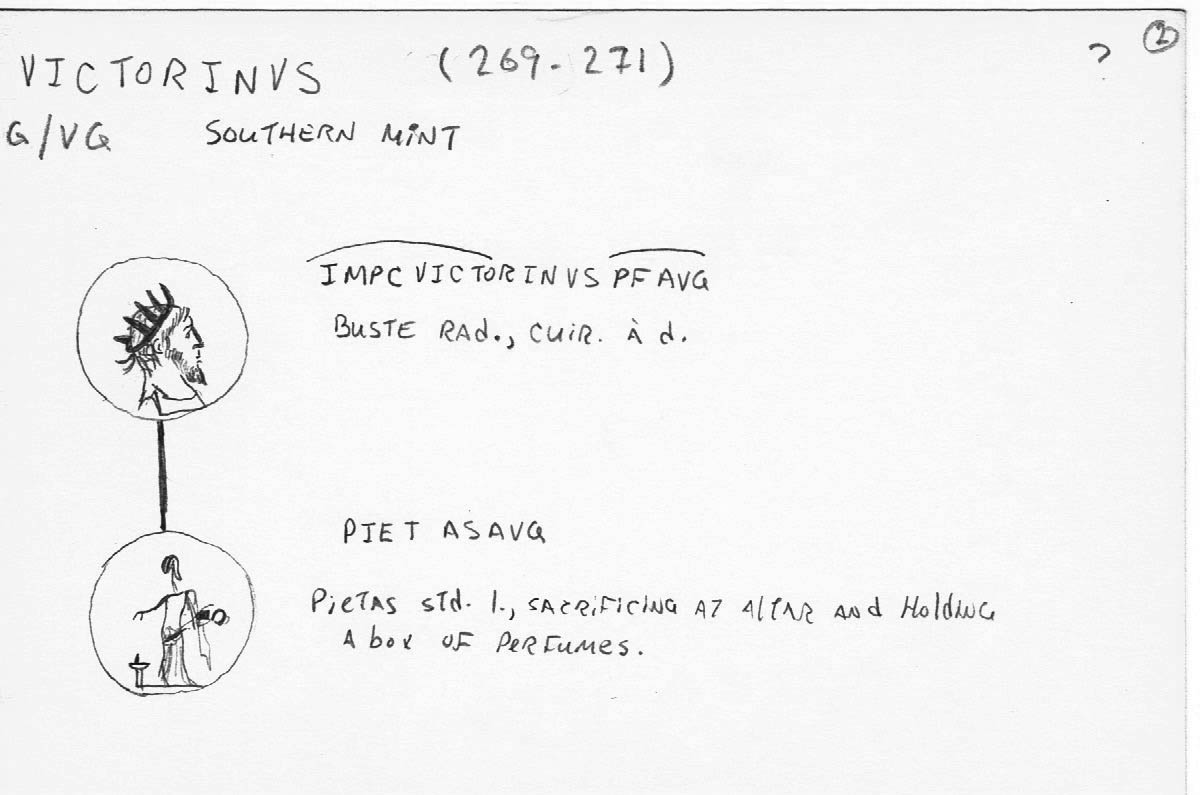 VICTORINVS (269-271) ? 2
G/VG SOUTHERN MINT
IMPC VICTORINVS PFAVG
BUSTE RAd., CUIR. À d.
PIET ASAVG
PIETAS std. l., SACRIFICING AT ALTAR ANd HoldING
A box OF PERFUMES.